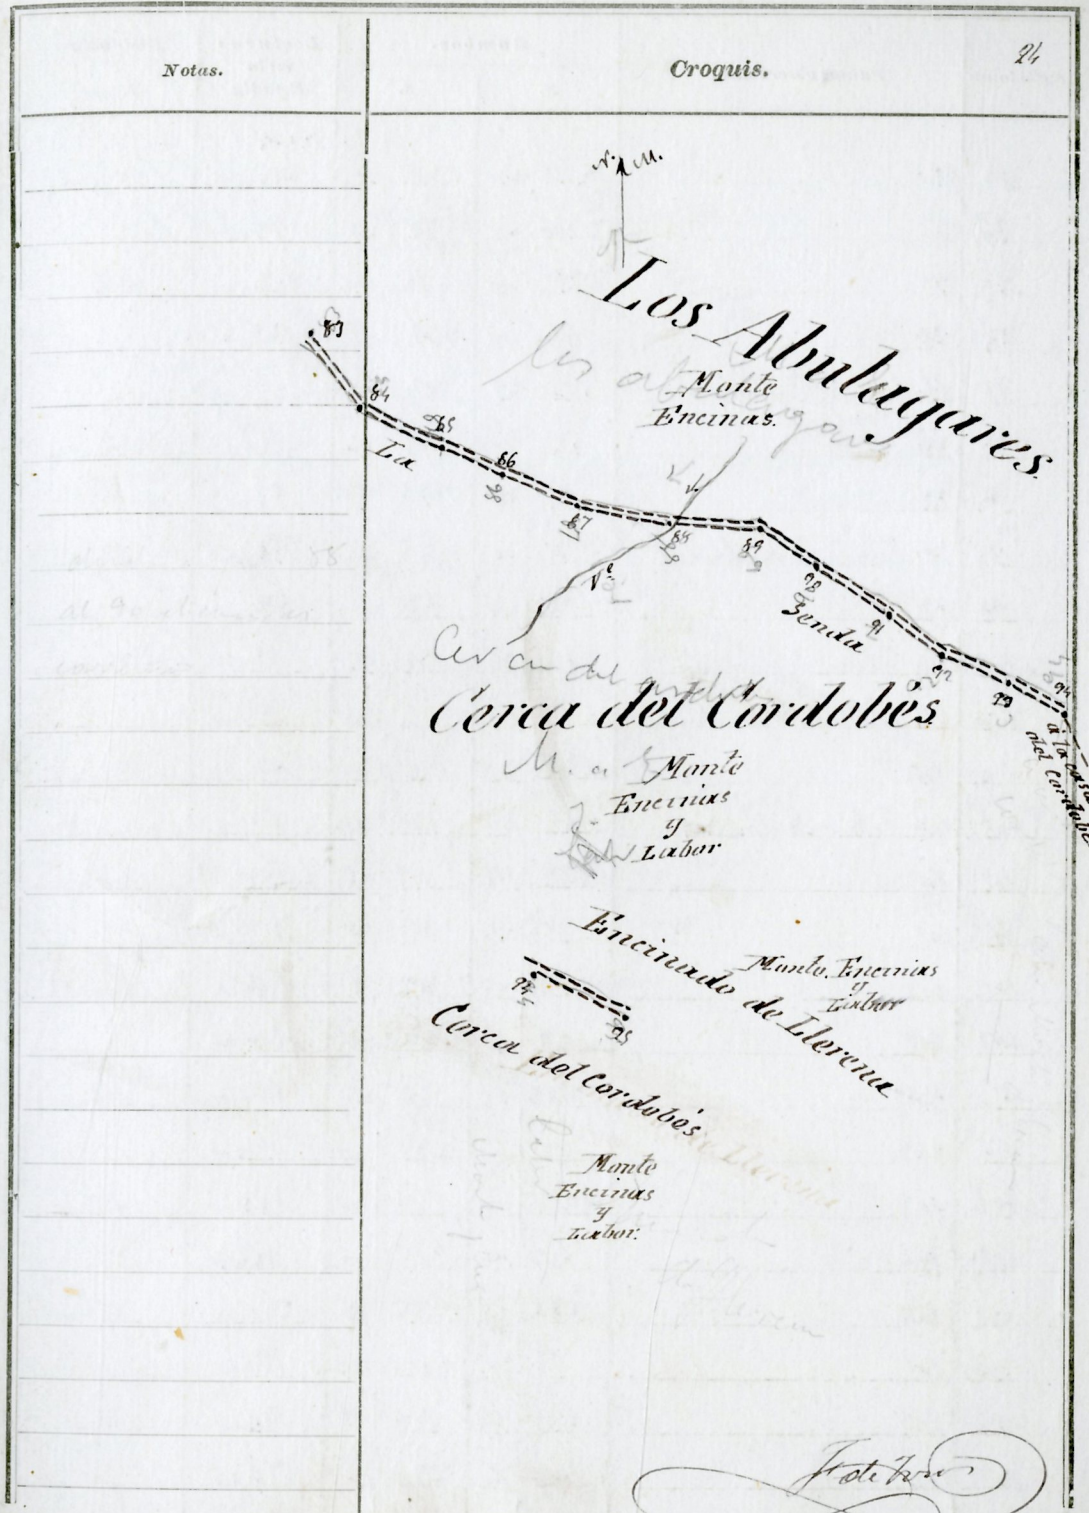 24
Notas.
Croquis.
N. M.
Los Abulagares.
Monte
Encinas.
83
84
85
86
87
88
89
90
91
92
93
94
La
Senda
V.
Vª
á la casa
del Cordobés
Cerca del Cordobés.
Monte
Encinas
y
Labor
Encinado de Llerena
Monte Encinas
y
Labor
94
95
Cerca del Cordobés
Monte
Encinas
y
Labor.